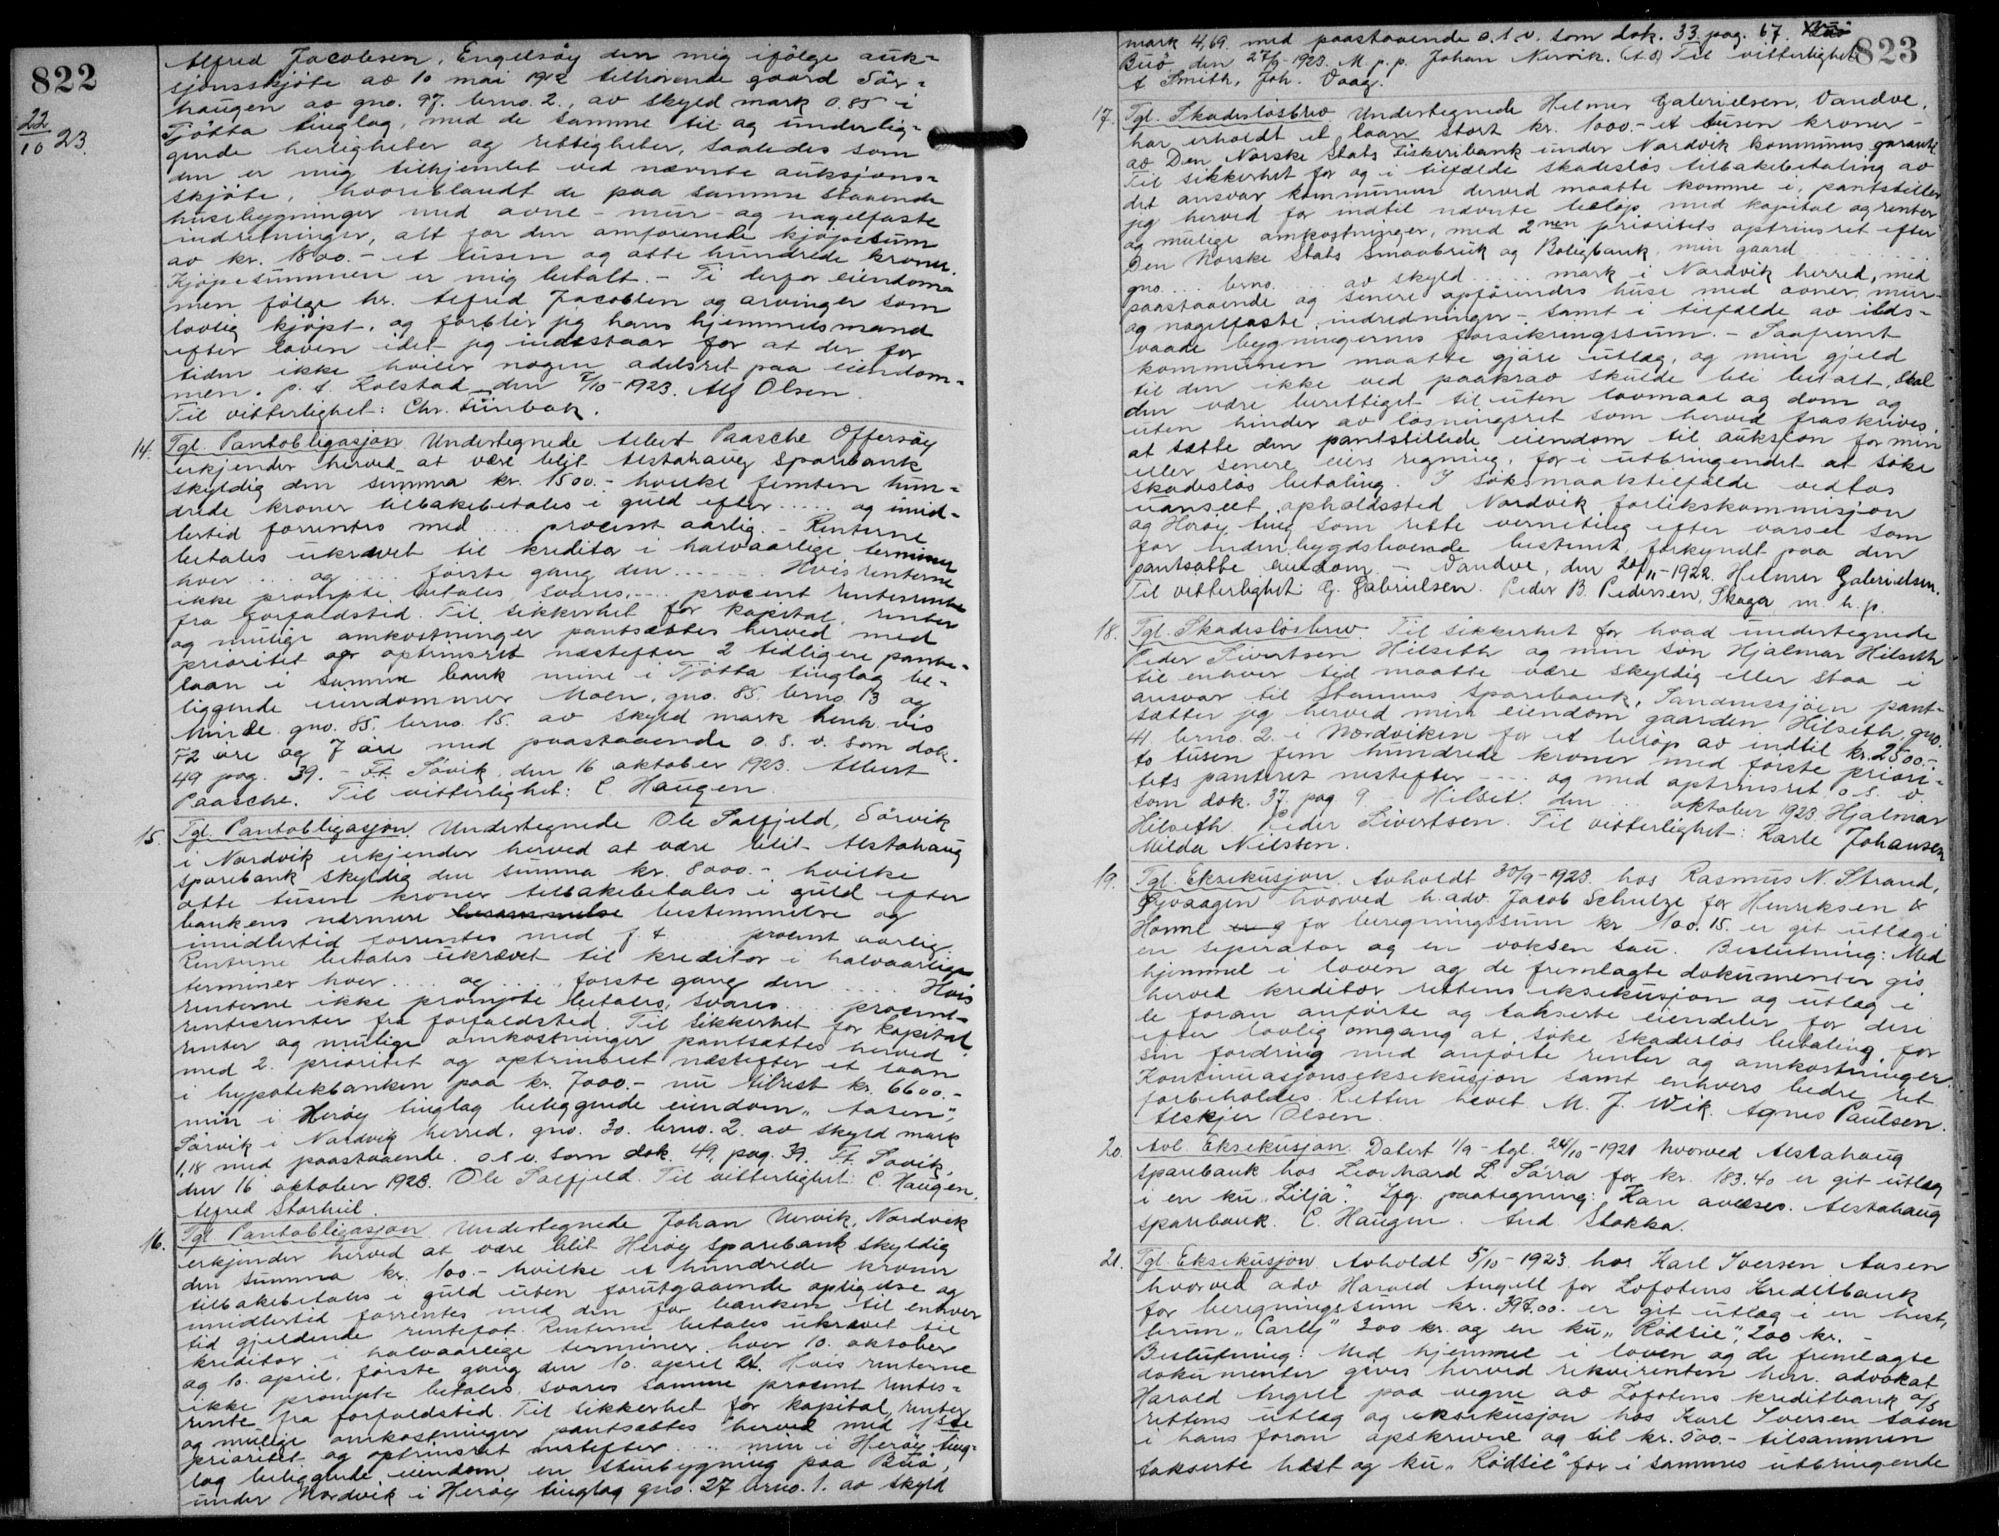 822
22/10 23.
Alfred Jacobsen, Engelsöy den mig ifölge auk-
sjonsskjöte av 10 mai 1912 tilhörende gaard Sör-
haugen av gno. 97. brno. 2., av skyld mark 0.85 i
Tjötta tinglag, med de samme til og underlig-
gende herligheter og rettigheter, saaledes som
den er mig tilhjemlet ved nævnte auksjons-
skjöte, hvoriblandt de paa samme staaende
husebygninger med avne- mur- og nagelfaste
indretninger, alt for den omforenede kjöpesum
av kr. 1800.- et tusen og otte hundrede kroner.
Kjöpesummen er mig betalt. - Ti derfor eiendom-
men fölge hr. Alfred Jacobsen og arvinger som
lovlig kjöpt, og forblir jeg hans hjemmelsmand
efter loven idet jeg indestaar for at der for
tiden ikke hviler nogen odelsret paa eiendom-
men. p.t. Rolstad den 7/10-1923. Alf Olsen.
Til vitterlighet: Chr. Fünbak.
14. Tgl. Pantobligasjon Undertegnede Albert Paasche Offersöy
erkjender herved at være blit Alstahaug Sparebank
skyldig den summa kr. 1500.- hvilke femten hun-
drede kroner tilbakebetales i guld efter ..... og imid-
lertid forrentes med ... procent aarlig. - Renterne
betales ukrævet til kreditor i halvaarlige terminer
hver ... og .... förste gang den ....... Hvis renterne
ikke prompte betales, svares .... procent rentesrente
fra forfaldstid. Til sikkerhet for kapital, renter
og mulige omkostninger pantsættes herved med
prioritet og optrinsret næstefter 2 tidligere pante-
laan i samme bank mine i Tjötta tinglag be-
liggende eiendommer Moen, gno. 85 brno 13 og
Minde gno. 85. brno. 15. av skyld mark henh. vis
72 öre og 7 öre med paastaaende o. s. v. som dok.
49 pag. 39. - Ft. Sövik, den 16 oktober 1923. Albert
Paasche. Til vitterlighet: C Haugen.
15. Tgl. Pantobligasjon. Undertegnede Ole Salfjeld, Sörvik
i Nordvik erkjender herved at være blit Alstahaug
sparebank skyldig den summa kr. 8000.- hvilke
otte tusen kroner tilbakebetales i guld efter
bankens nærmere bestemmelse og
imidlertid forrentes med f. t. ... procent aarlig.
Renterne betales ukrævet til kreditor i halvaarlige
terminer hver .... og .... förste gang den ..... Hvis
renterne ikke prompte betales, svares ... procent
rentesrenter fra forfaldstid. Til sikkerhet for kapital,
renter og mulige omkostninger pantsættes herved
med 2. prioritet og optrinsret næstefter et laan
i hypotekbanken paa kr. 7000.- nu tilrest kr. 6600.-
min i Heröy tinglag beliggende eiendom „Aasen",
Sörvik i Nordvik herred, gno. 30. brno. 2. av skyld mark
1,18 med paastaaende. o.s.v. som dok. 49, pag. 39. Ft. Sövik,
den 16 oktober 1923. Ole Salfjeld. Til vitterlighet: C. Haugen.
Alfred Storhiil.
16. Tgl. Pantobligasjon Undertegnede Johan Nervik, Nordvik
erkjender herved at være blit Heröy sparebank skyldig
den summa kr. 100.- hvilke et hundrede kroner
tilbakebetales i guld uten forutgaaende opsigelse og
imidlertid forrentes med den for banken til enhver
tid gjeldende rentefot. Renterne betales ukrævet til
kreditor i halvaarlige terminer, hver 10. oktober
og 10. april, förste gang den 10. april 24. Hvis renterne
ikke prompte betales, svares samme procent rentes-
rente fra forfaldstid. Til sikkerhet for kapital, renter
og mulige omkostninger pantsættes herved med 1ste
prioritet og optrinsret næstefter .... min i Heröy ting-
lag beliggende eiendom, en stuebygning paa Buö,
under Nordvik i Heröy tinglag gno. 27 brno. 1. av skyld
823
mark 4,69. med paastaaende o.s.v. som dok. 33 pag. 67.
Buö den 27/9-1923. M p.p. Johan Nervik. (L.S.) Til vitterlighet:
A Smith, Joh. Vaag.
17. Tgl. Skadeslösbrev Undertegnede Helmer Gabrielsen, Vandve,
har erholdt et laan stort kr. 1000.- et tusen kroner -
av Den Norske Stats Fiskeribank under Nordvik kommunes garanti.
Til sikkerhet for og i tilfælde skadeslös tilbakebetaling av
det ansvar kommunen derved maatte komme i, pantstiller
jeg herved for indtil nævnte belöp med kapital og renter
og mulige omkostninger, med 2nen prioritets optrinsret efter
Den Norske Stats Smaabruk og Boligbank, min gaard .......
gno ... brno. ... av skyld ..... mark i Nordvik herred, med
paastaaende og senere opförendes huse med avner, mur-
og nagelfaste indredninger - samt i tilfælde av ilds-
vaade bygningernes forsikringssum. - Saafremt
kommunen maatte gjöre utlæg, og min gjeld
til den ikke ved paakrav skulde bli betalt, skal
den være berettiget til uten lovmaal og dom og
uten hinder av lösningsret som herved fraskrives,
at sætte den pantstillede eiendom til auksjon for min
eller senere eiers regning, for i utbringendet at söke
skadeslös betaling. I söksmaalstilfælde vedtas
uanseet opholdssted Nordvik forlikskommisjon
og Heröy ting som rette verneting efter varsel som
for indenbygdsboende bestemt, forkyndt paa den
pantsatte eiendom. - Vandve, den 20/11-1922. Helmer Gabrielsen.
Til vitterlighet: G. Gabrielsen. Peder B. Pedersen, Skaga m. h. p.
18. Tgl. Skadeslösbrev. Til sikkerhet for hvad undertegnede
Peder Sivertsen Hilseth og min sön Hjalmar Hilseth
til enhver tid maatte være skyldig eller staa i
ansvar til Stamnes Sparebank, Sandnessjöen pant-
sætter jeg herved min eiendom gaarden Hilseth, gno.
41. brno. 2. i Nordviken for et belöp av indtil kr. 2500.-
to tusen fem hundrede kroner med förste priori-
tets panteret nestefter .... og med optrinsret o. s. v.
som dok. 37 pag 9. Hilset den ... oktober 1923. Hjalmar
Hilseth Peder Sivertsen. Til vitterlighet: Karle Johansen
Milda Nilssen.
19. Tgl. Eksekusjon. Avholdt 30/9-1923. hos Rasmus N. Strand,
hvorved h.adv. Jacob Schulze for Henriksen &
Homl for beregningssum kr 100.15. er git utlæg i
en seperator og en voksen sau. Beslutning: Med
hjemmel i loven og de fremlagte dokumenter gis
herved kreditor rettens eksekusjon og utlæg i
de foran anförte og takserte eiendeler for deri
efter lovlig omgang at söke skadeslös betaling for
sin fordring med anförte renter og omkostninger.
Kontinuasjonseksekusjon samt enhvers bedre ret
forbeholdes. Retten hevet. M. J. Wik. Agnes Paulsen.
Alskjer Olsen.
20. Avl. Eksekusjon. Datert 1/9 - tgl. 24/10-1921 hvorved Alstahaug
Sparebank hos Leonhard L. Sörra for kr. 183.40 er git utlæg
i en ku „Lilja". Ifg. paategning: Kan avlæses. Alstahaug
sparebank. C. Haugen. And. Stokka.
21. Tgl. Eksekusjon Avholdt 5/10-1923. hos Karl Iversen Aasen
hvorved adv Harald Angell for Lofotens Kreditbank
for beregningssum kr. 397.00. er git utlæg i en hest,
brun „Carly" 300 kr. og en ku „Rödsie", 200 kr. -
Beslutning: Med hjemmel i loven og de fremlagte
dokumenter gives herved rekvirenten herr. advokat
Harald Angell paa vegne av Lofotens kreditbank a/s
rettens utlæg og eksekusjon hos Karl Iversen Aasen
i hans foran opskrevne og til kr. 500.- tilsammen
takserte hest og ku „Rödsie" for i sammes utbringende